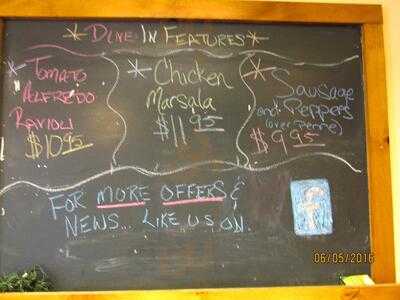 * DINE-IN FEATURES *
* TOMATO
ALFREDO
RAVIOLI
$10.95
* Chicken
Marsala
$11.95
* Sausage
and Peppers
(over penne)
$9.95
FOR MORE OFFERS &
NEWS... LIKE US ON
f
06/05/2016